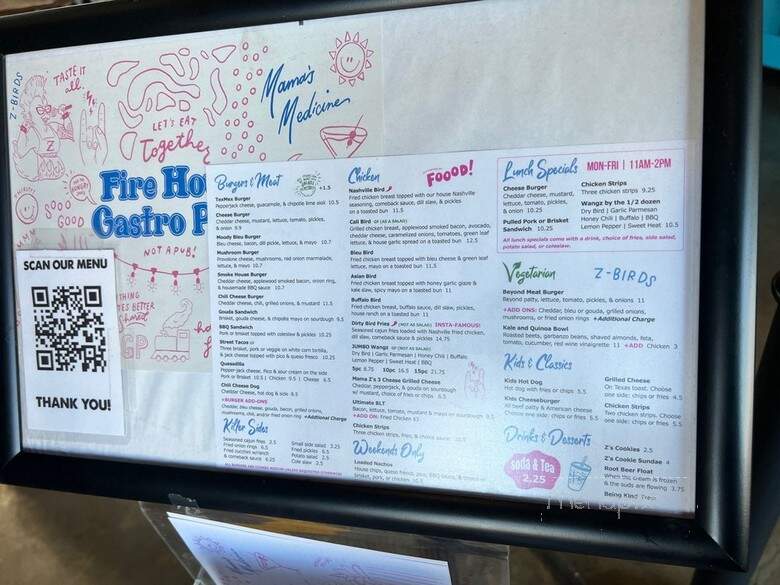 Z-BIRDS
TASTE IT
all.
LET'S EAT
Together
Mama's
Medicine
Fire Ho
Gastro P
NOT A PUB!
GP
SCAN OUR MENU
THANK YOU!
Burgers & Meat
+1.5
TexMex Burger
Pepperjack cheese, guacamole, & chipotle lime aioli 10.5
Cheese Burger
Cheddar cheese, mustard, lettuce, tomato, pickles,
& onion 9.9
Moody Bleu Burger
Bleu cheese, bacon, dill pickle, lettuce, & mayo 10.7
Mushroom Burger
Provolone cheese, mushrooms, red onion marmalade,
lettuce, & mayo 10.7
Smoke House Burger
Cheddar cheese, applewood smoked bacon, onion ring,
& housemade BBQ sauce 10.7
Chili Cheese Burger
Cheddar cheese, chili, grilled onions, & mustard 11.5
Gouda Sandwich
Brisket, gouda cheese, & chipotle mayo on sourdough 9.5
BBQ Sandwich
Pork or brisket topped with coleslaw & pickles 10.25
Street Tacos
Three brisket, pork or veggie on white corn tortilla,
& jack cheese topped with pico & queso fresco 10.25
Quesadilla
Pepper jack cheese, Pico & sour cream on the side
Pork or Brisket 10.5 | Chicken 9.5 | Cheese 6.5
Chili Cheese Dog
Cheddar Cheese, hot dog & side 8.5
+BURGER ADD-ONS
Cheddar, bleu cheese, gouda, bacon, grilled onions,
mushrooms, chili, and/or fried onion ring +Additional Charge
Killer Sides
Seasoned cajun fries 2.5
Fried onion rings 6.5
Fried zucchini w/ranch
& comeback sauce 6.25
Small side salad 3.25
Fried pickles 6.5
Potato salad 2.5
Cole slaw 2.5
Chicken
FOOOD!
Nashville Bird
Fried chicken breast topped with our house Nashville
seasoning, comeback sauce, dill slaw, & pickles
on a toasted bun 11.5
Cali Bird GF (AS A SALAD)
Grilled chicken breast, applewood smoked bacon, avocado,
cheddar cheese, caramelized onions, tomatoes, green leaf
lettuce, & house garlic spread on a toasted bun 12.5
Bleu Bird
Fried chicken breast topped with bleu cheese & green leaf
lettuce, mayo on a toasted bun 11.5
Asian Bird
Fried chicken breast topped with honey garlic glaze &
kale slaw, spicy mayo on a toasted bun 11
Buffalo Bird
Fried chicken breast, buffalo sauce, dill slaw, pickles,
house ranch on a toasted bun 11
Dirty Bird Fries (NOT AS SALAD) INSTA-FAMOUS!
Seasoned cajun fries loaded with Nashville fried chicken,
dill slaw, comeback sauce & pickles 14.75
JUMBO Wangz GF (NOT AS SALAD)
Dry Bird | Garlic Parmesan | Honey Chili | Buffalo
Lemon Pepper | Sweet Heat | BBQ
5pc 8.75 10pc 16.5 15pc 21.75
Mama Z's 3 Cheese Grilled Cheese
Cheddar, pepperjack, & gouda on sourdough
w/ mustard, choice of fries or chips 6.5
Ultimate BLT
Bacon, lettuce, tomato, mustard & mayo on sourdough 8.5
+ADD ON: Fried Chicken
Chicken Strips
Three chicken strips, fries, & choice sauce 10.5
Weekends Only
Loaded Nachos
House chips, queso fresco, pico, BBQ beans, & choice of
brisket, pork, or chicken
Lunch Specials MON-FRI | 11AM-2PM
Cheese Burger
Cheddar cheese, mustard,
lettuce, tomato, pickles,
& onion 10.25
Pulled Pork or Brisket
Sandwich 10.25
Chicken Strips
Three chicken strips 9.25
Wangz by the 1/2 dozen
Dry Bird | Garlic Parmesan
Honey Chili | Buffalo | BBQ
Lemon Pepper | Sweet Heat 10.5
All lunch specials come with a drink, choice of fries, side salad,
potato salad, or coleslaw.
Vegetarian
Z-BIRDS
Beyond Meat Burger
Beyond patty, lettuce, tomato, pickles, & onions 11
+ADD ONS: Cheddar, bleu or gouda, grilled onions,
mushrooms, or fried onion rings +Additional Charge
Kale and Quinoa Bowl
Roasted beets, garbanzo beans, shaved almonds, feta,
tomato, cucumber, red wine vinaigrette 11 +ADD Chicken 3
Kids & Classics
Kids Hot Dog
Hot dog with fries or chips 5.5
Kids Cheeseburger
All beef patty & American cheese
Choose one side: chips or fries
Grilled Cheese
On Texas toast. Choose
one side: chips or fries 4.5
Chicken Strips
Two chicken strips. Choose
one side: chips or fries 5.5
Drinks & Desserts
soda & Tea
2.25
Z's Cookies 2.5
Z's Cookie Sundae 4
Root Beer Float
When the cream is frozen
& the suds are flowing 3.75
Being Kind